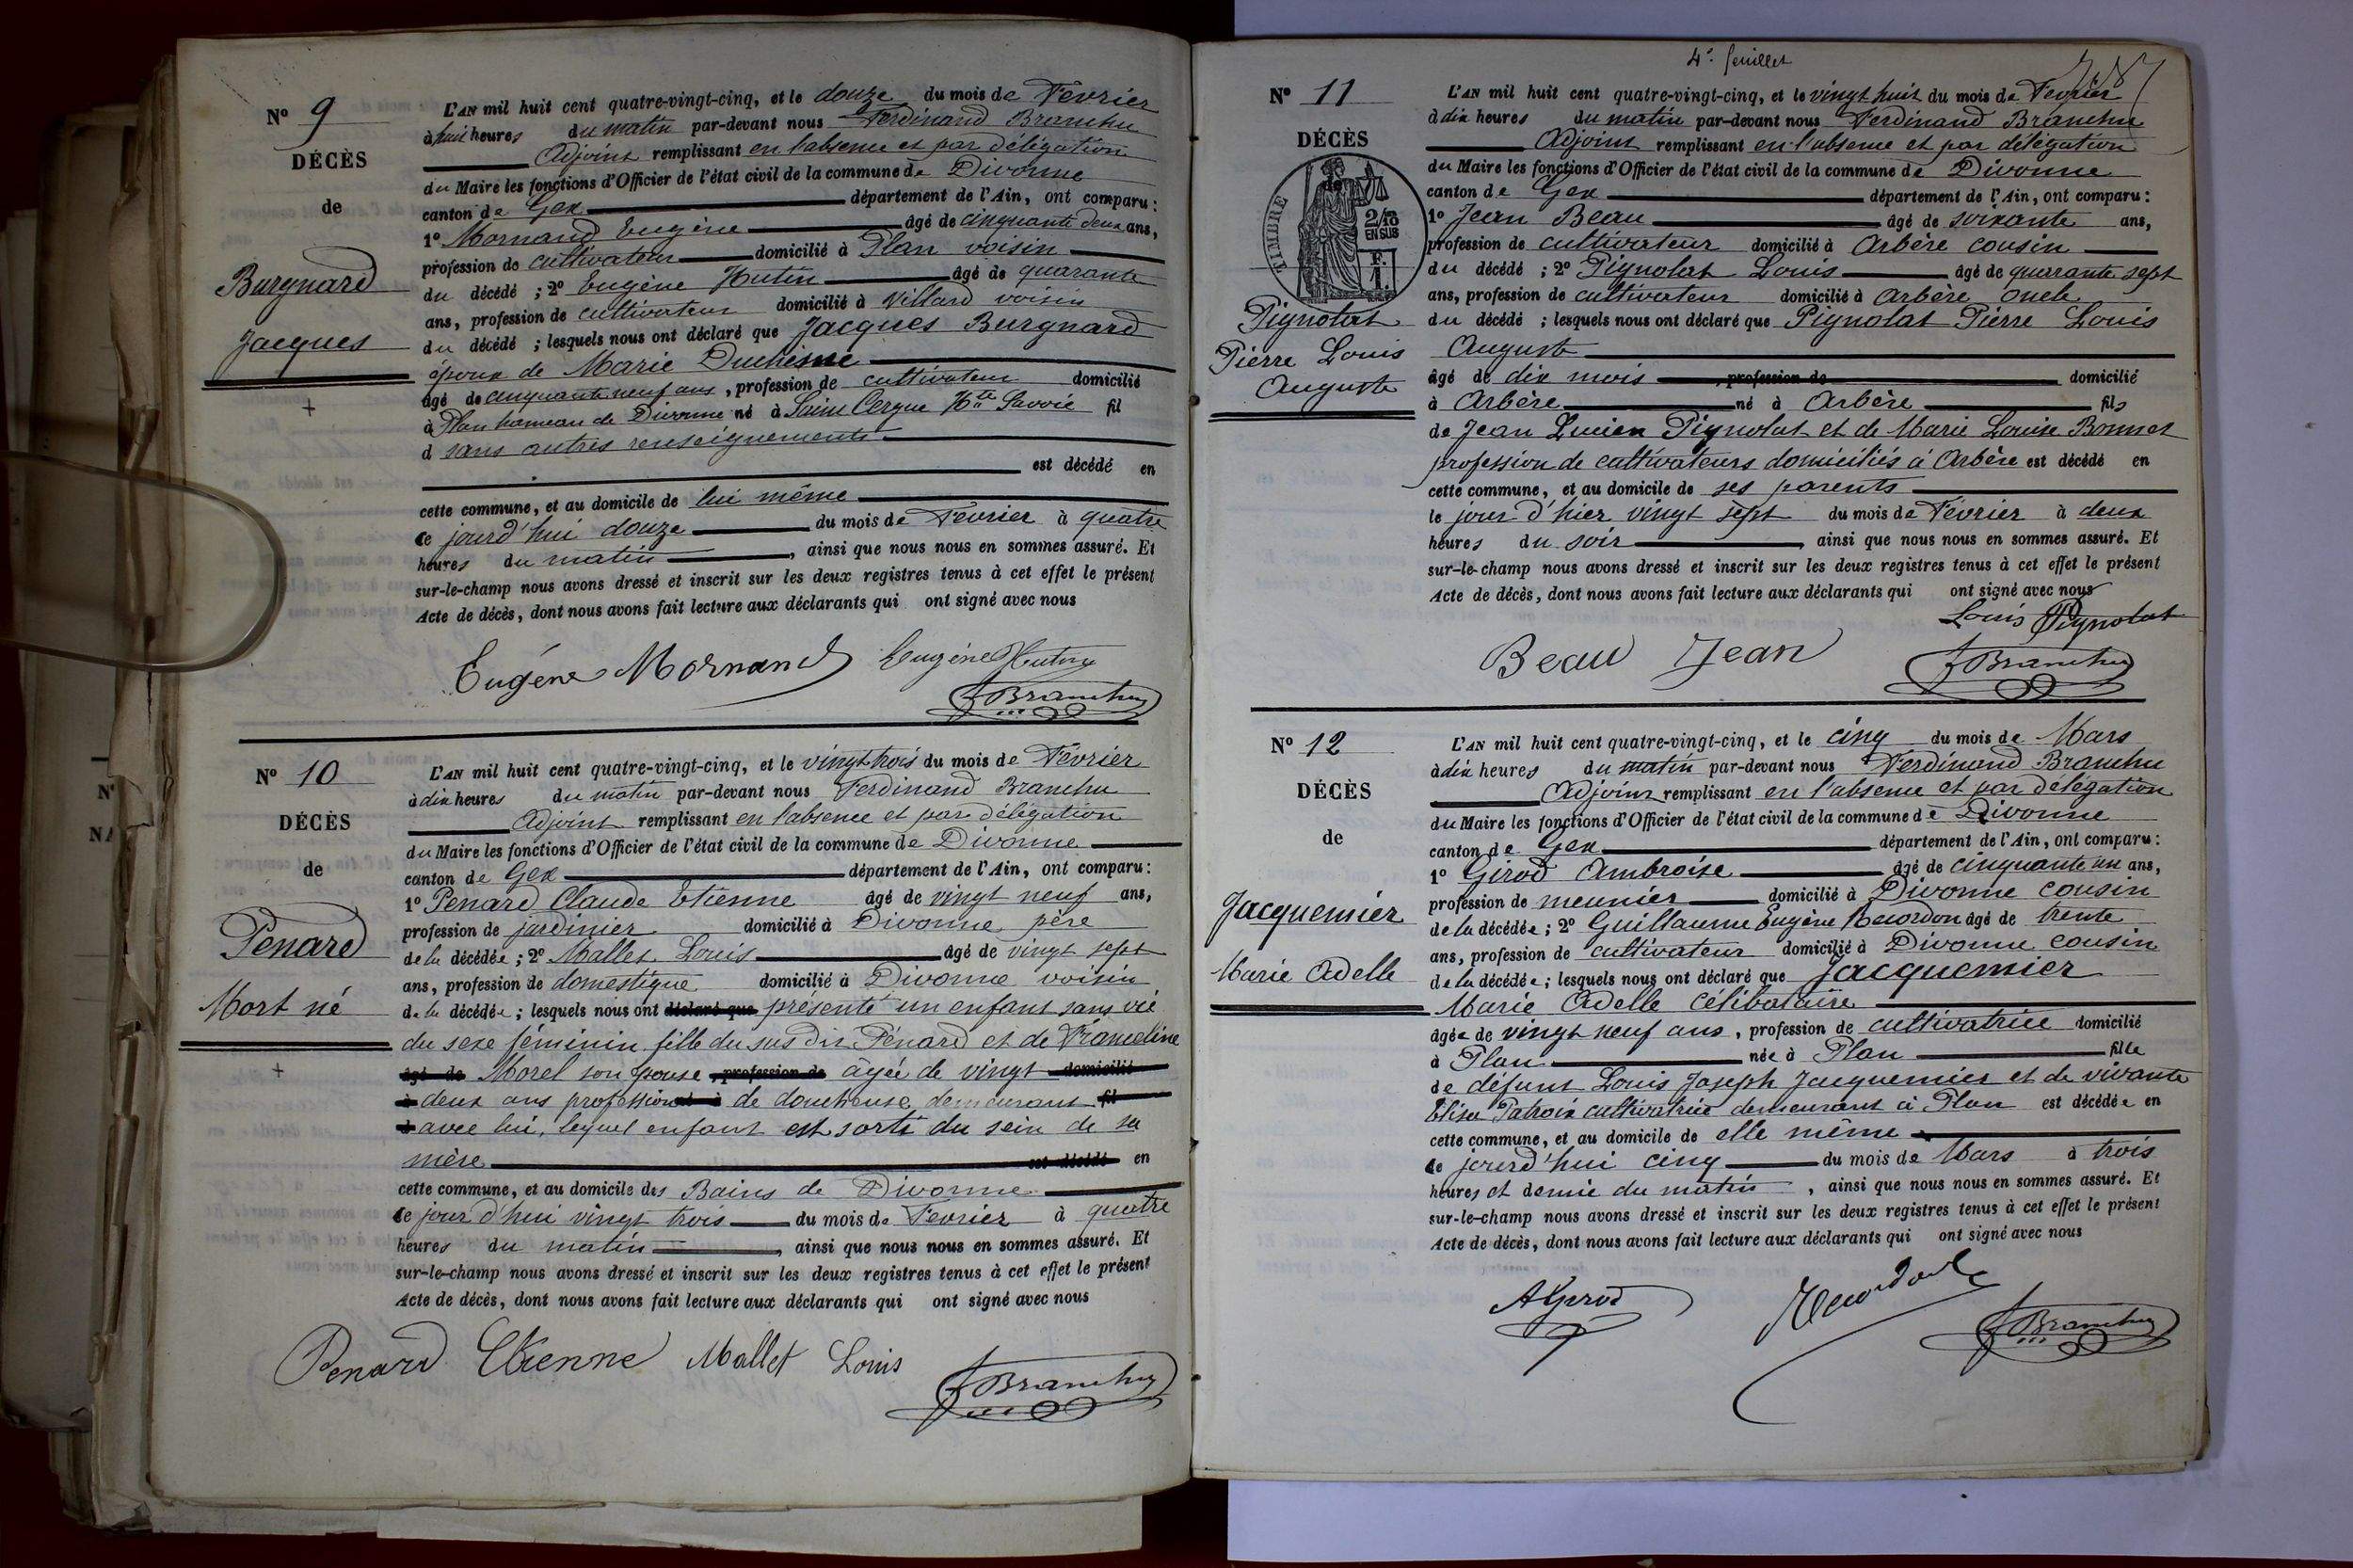 Nº 9
DÉCÈS
de
Burgnard
Jacques
L'AN mil huit cent quatre-vingt-cinq, et le douze du mois de Février
à huit heures du matin par-devant nous Ferdinand Branchu
Adjoint remplissant en l'absence et par délégation
du Maire les fonctions d'Officier de l'état civil de la commune de Divonne
canton de Gex département de l'Ain, ont comparu :
1º Mornand Eugène âgé de cinquante deux ans,
profession de cultivateur domicilié à Plan voisin
du décédé ; 2º Eugène Hutin âgé de quarante
ans, profession de cultivateur domicilié à Villard voisin
du décédé ; lesquels nous ont déclaré que Jacques Burgnard
époux de Marie Duchêsne
âgé de cinquante neuf ans, profession de cultivateur domicilié
à Plan hameau de Divonne né à Saint Cergue Hte Savoie fil
d sans autres renseignements
est décédé en
cette commune, et au domicile de lui même
ce jourd'hui douze du mois de Février à quatre
heures du matin, ainsi que nous nous en sommes assuré. Et
sur-le-champ nous avons dressé et inscrit sur les deux registres tenus à cet effet le présent
Acte de décès, dont nous avons fait lecture aux déclarants qui ont signé avec nous
Eugène Mornand Eugène Hutin
F Branchu
Nº 10
DÉCÈS
de
Penard
Mort né
L'AN mil huit cent quatre-vingt-cinq, et le vingt trois du mois de Février
à dix heures du matin par-devant nous Ferdinand Branchu
Adjoint remplissant en l'absence et par délégation
du Maire les fonctions d'Officier de l'état civil de la commune de Divonne
canton de Gex département de l'Ain, ont comparu :
1º Penard Claude Etienne âgé de vingt neuf ans,
profession de jardinier domicilié à Divonne père
de la décédée ; 2º Mallet Louis âgé de vingt sept
ans, profession de domestique domicilié à Divonne voisin
de la décédée ; lesquels nous ont déclaré que présenté un enfant sans vie
du sexe féminin fille du sus dit Pénard et de Franceline
âgé de Morel son épouse, profession de âgée de vingt domicilié
à deux ans profession né à de doucheuse demeurant fil
d avec lui, lequel enfant est sorti du sein de sa
mère est décédé en
cette commune, et au domicile des Bains de Divonne
ce jour d'hui vingt trois du mois de Février à quatre
heures du matin, ainsi que nous nous en sommes assuré. Et
sur-le-champ nous avons dressé et inscrit sur les deux registres tenus à cet effet le présent
Acte de décès, dont nous avons fait lecture aux déclarants qui ont signé avec nous
Penard Etienne Mallet Louis
F Branchu
4e feuillet
Nº 11
DÉCÈS
TIMBRE
2/10
EN SUS
Pignolat
Pierre Louis
Auguste
L'AN mil huit cent quatre-vingt-cinq, et le vingt huit du mois de Février
à dix heures du matin par-devant nous Ferdinand Branchu
Adjoint remplissant en l'absence et par délégation
du Maire les fonctions d'Officier de l'état civil de la commune de Divonne
canton de Gex département de l'Ain, ont comparu :
1º Jean Beau âgé de soixante ans,
profession de cultivateur domicilié à Arbère cousin
du décédé ; 2º Pignolat Louis âgé de quarante sept
ans, profession de cultivateur domicilié à Arbère oncle
du décédé ; lesquels nous ont déclaré que Pignolat Pierre Louis
Auguste
âgé de dix mois, profession de domicilié
à Arbère né à Arbère fils
de Jean Lucien Pignolat et de Marie Louise Bonnet
profession de cultivateurs domiciliés à Arbère est décédé en
cette commune, et au domicile de ses parents
le jour d'hier vingt sept du mois de Février à deux
heures du soir, ainsi que nous nous en sommes assuré. Et
sur-le-champ nous avons dressé et inscrit sur les deux registres tenus à cet effet le présent
Acte de décès, dont nous avons fait lecture aux déclarants qui ont signé avec nous
Louis Pignolat
Beau Jean
F Branchu
Nº 12
DÉCÈS
de
Jacquemier
Marie Adelle
L'AN mil huit cent quatre-vingt-cinq, et le cinq du mois de Mars
à dix heures du matin par-devant nous Ferdinand Branchu
Adjoint remplissant en l'absence et par délégation
du Maire les fonctions d'Officier de l'état civil de la commune de Divonne
canton de Gex département de l'Ain, ont comparu :
1º Girod Ambroise âgé de cinquante un ans,
profession de meunier domicilié à Divonne cousin
de la décédée ; 2º Guillaume Eugène Recordon âgé de trente
ans, profession de cultivateur domicilié à Divonne cousin
de la décédée ; lesquels nous ont déclaré que Jacquemier
Marie Adelle célibataire
âgée de vingt neuf ans, profession de cultivatrice domicilié
à Plan née à Plan fille
de défunt Louis Joseph Jacquemier et de vivante
Elisa Patroix cultivatrice demeurant à Plan est décédée en
cette commune, et au domicile de elle même
ce jourd'hui cinq du mois de Mars à trois
heures et demie du matin, ainsi que nous nous en sommes assuré. Et
sur-le-champ nous avons dressé et inscrit sur les deux registres tenus à cet effet le présent
Acte de décès, dont nous avons fait lecture aux déclarants qui ont signé avec nous
A Girod Recordon
F Branchu